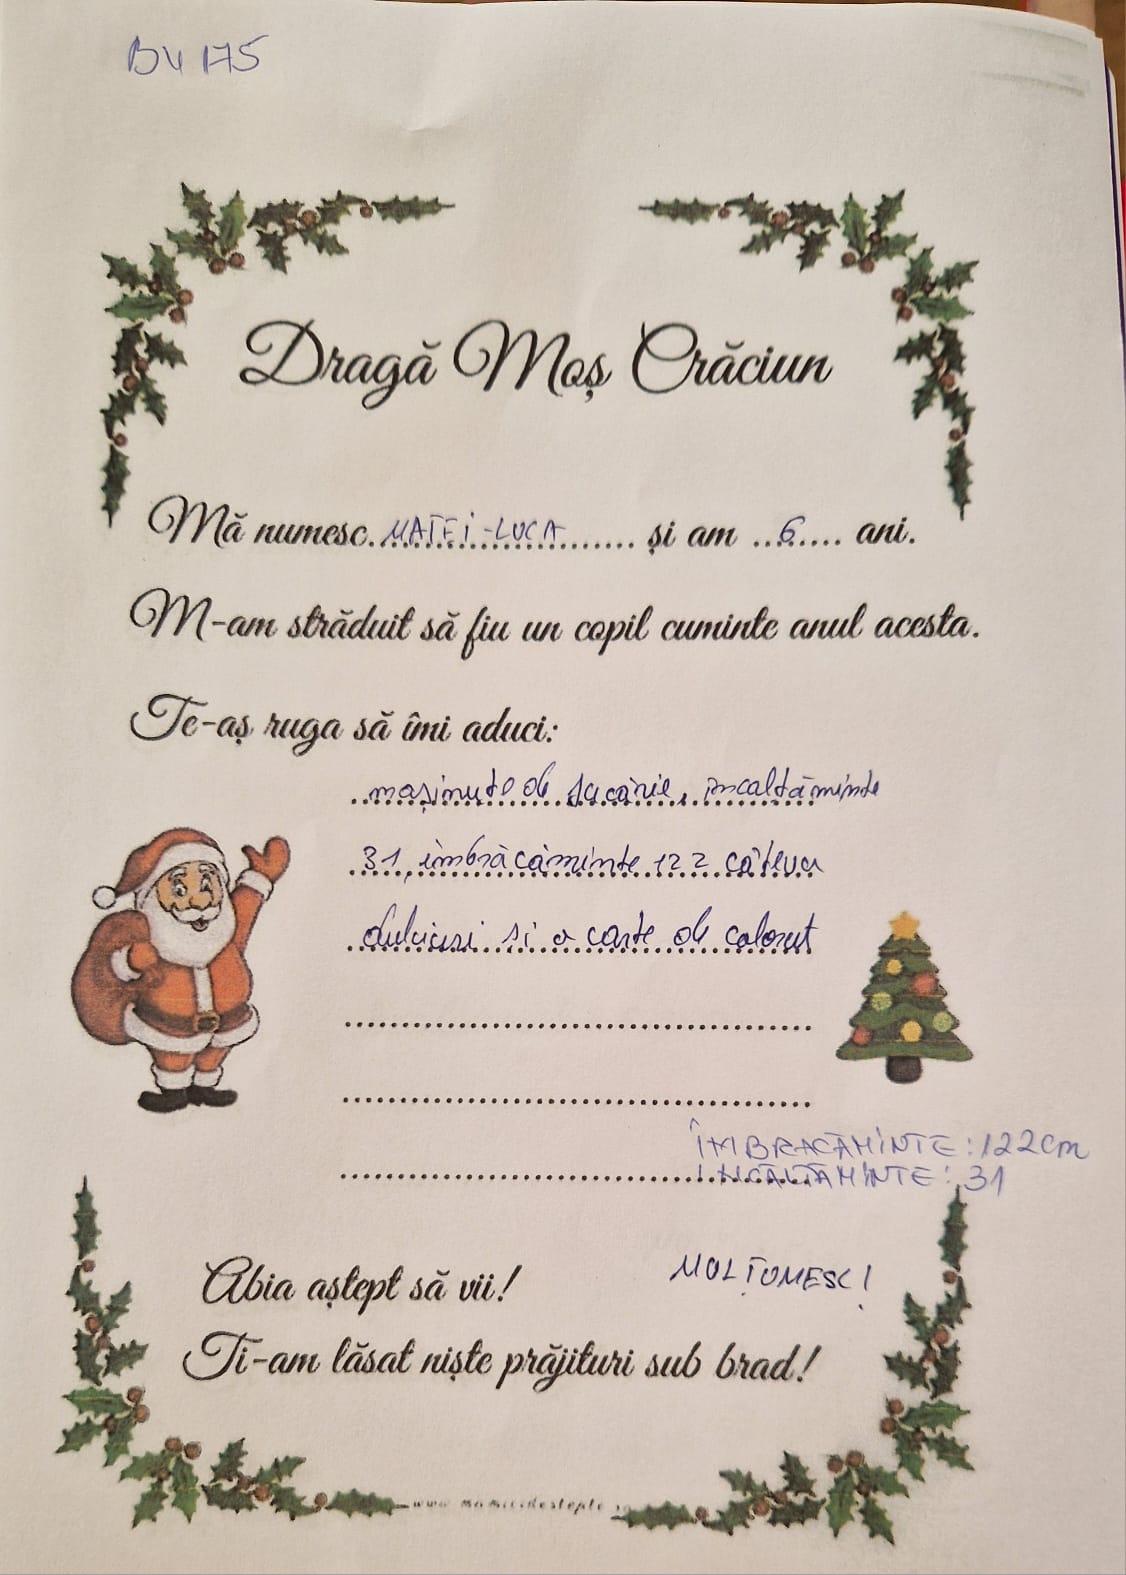 BV 175
Dragă Moș Crăciun
Mă numesc. MATEI-LUCA ....... și am ..6..... ani.
M-am străduit să fiu un copil cuminte anul acesta.
Te-aș ruga să îmi aduci:
mașinuțe de jucărie, încaltăminte
31, îmbrăcăminte 122 câteva
dulciuri si o carte de colorat
ÎMBRACĂMINTE: 122cm
INCĂLTĂMINTE: 31
Abia aștept să vii!
MULȚUMESC!
Ti-am lăsat niște prăjituri sub brad!